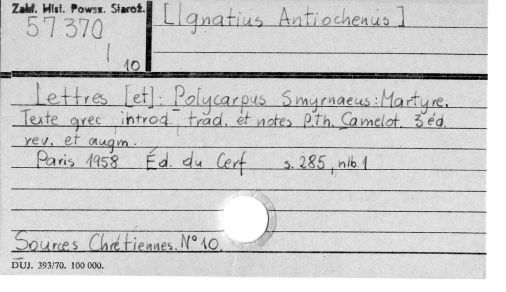 Zakł. Hist. Powsz. Staroż.
57370
1
10
[Ignatius Antiochenus]
Lettres [et]: Polycarpus Smyrnaeus: Martyre.
Texte grec introd. trad. et notes P.Th. Camelot. 3 éd.
rev. et augm.
Paris 1958 Éd. du Cerf s. 285, nlb. 1
Sources Chrétiennes. N° 10.
DUJ. 393/70. 100 000.